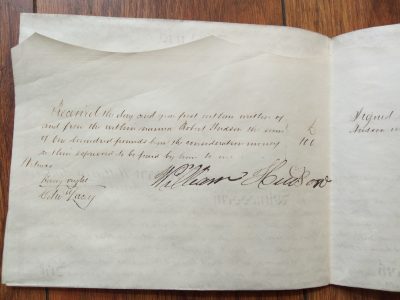 Received the day and year first within written of
and from the within named Robert Judson the sum £
of One hundred pounds being the consideration money 100
within expressed to be paid by him to me
Witness
William Hudson
Signed
Judson